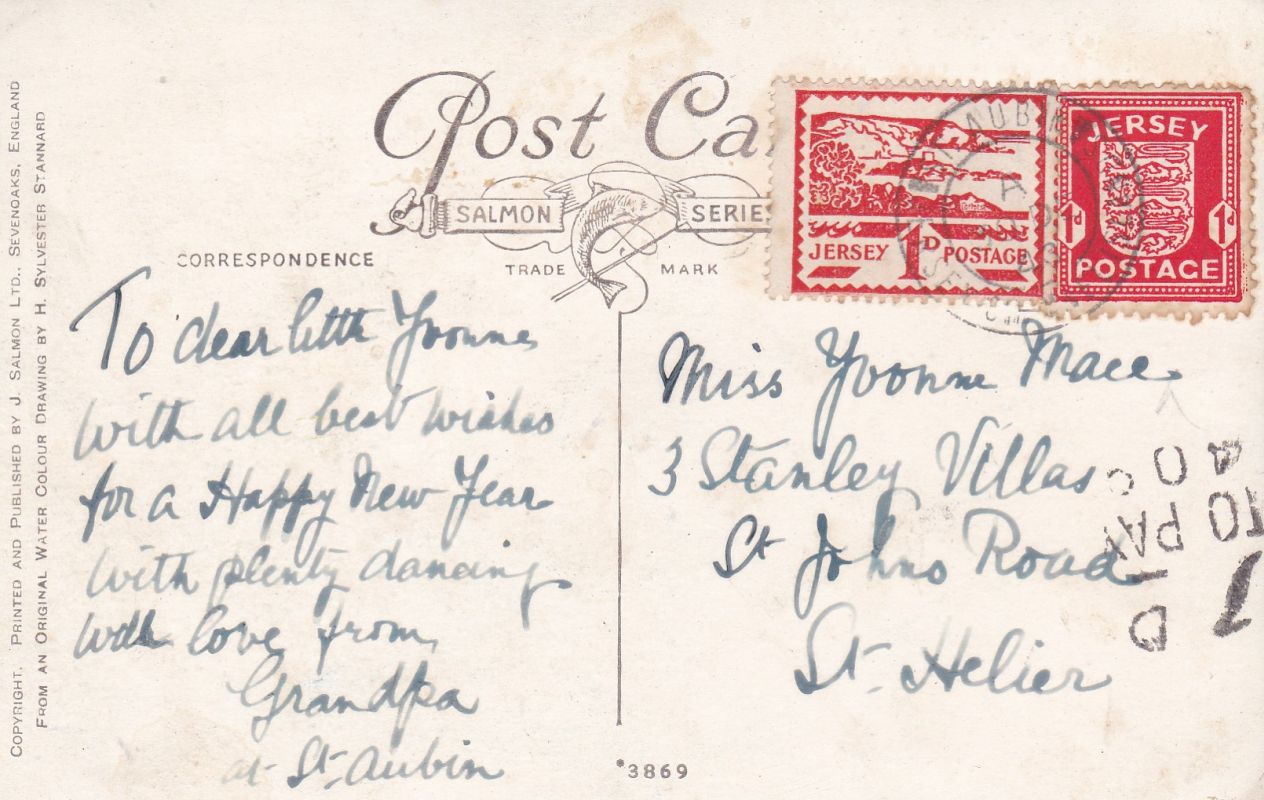 Post Ca
SALMON SERIES
TRADE MARK
CORRESPONDENCE
COPYRIGHT. PRINTED AND PUBLISHED BY J. SALMON LTD., SEVENOAKS, ENGLAND
FROM AN ORIGINAL WATER COLOUR DRAWING BY H. SYLVESTER STANNARD
JERSEY 1D POSTAGE
JERSEY
1d 1d
POSTAGE
ST AUBIN
JERSEY
To dear little Yvonne
with all best wishes
for a Happy New Year
with plenty dancing
with love from
Grandpa
at St. Aubin
Miss Yvonne Mace
3 Stanley Villas
St Johns Road
St. Helier
1D
TO PAY
40C
*3869